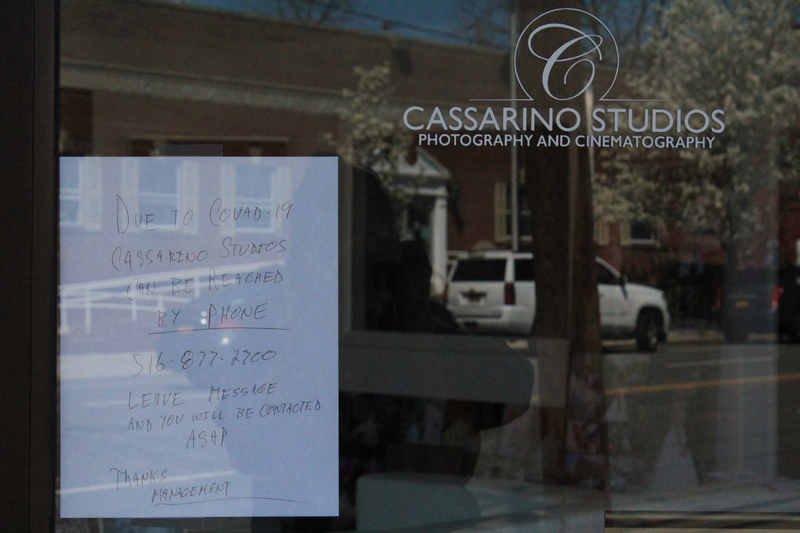 C
CASSARINO STUDIOS
PHOTOGRAPHY AND CINEMATOGRAPHY
DUE TO COVAD-19
CASSARINO STUDIOS
CAN BE REACHED
BY PHONE
516-877-2700
LEAVE MESSAGE
AND YOU WILL BE CONTACTED
ASAP
THANKS
MANAGEMENT